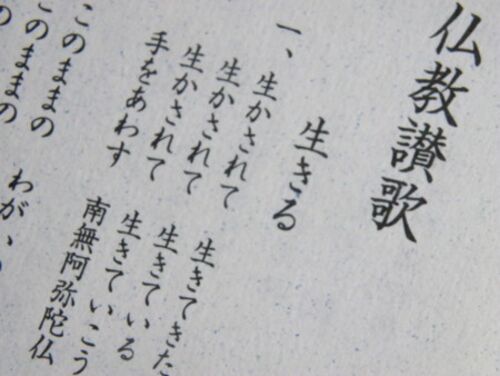 仏教讃歌
一、 生きる
生かされて 生きてきた
生かされて 生きている
生かされて 生きていこう
手をあわす 南無阿弥陀仏
このままの わが
このままの